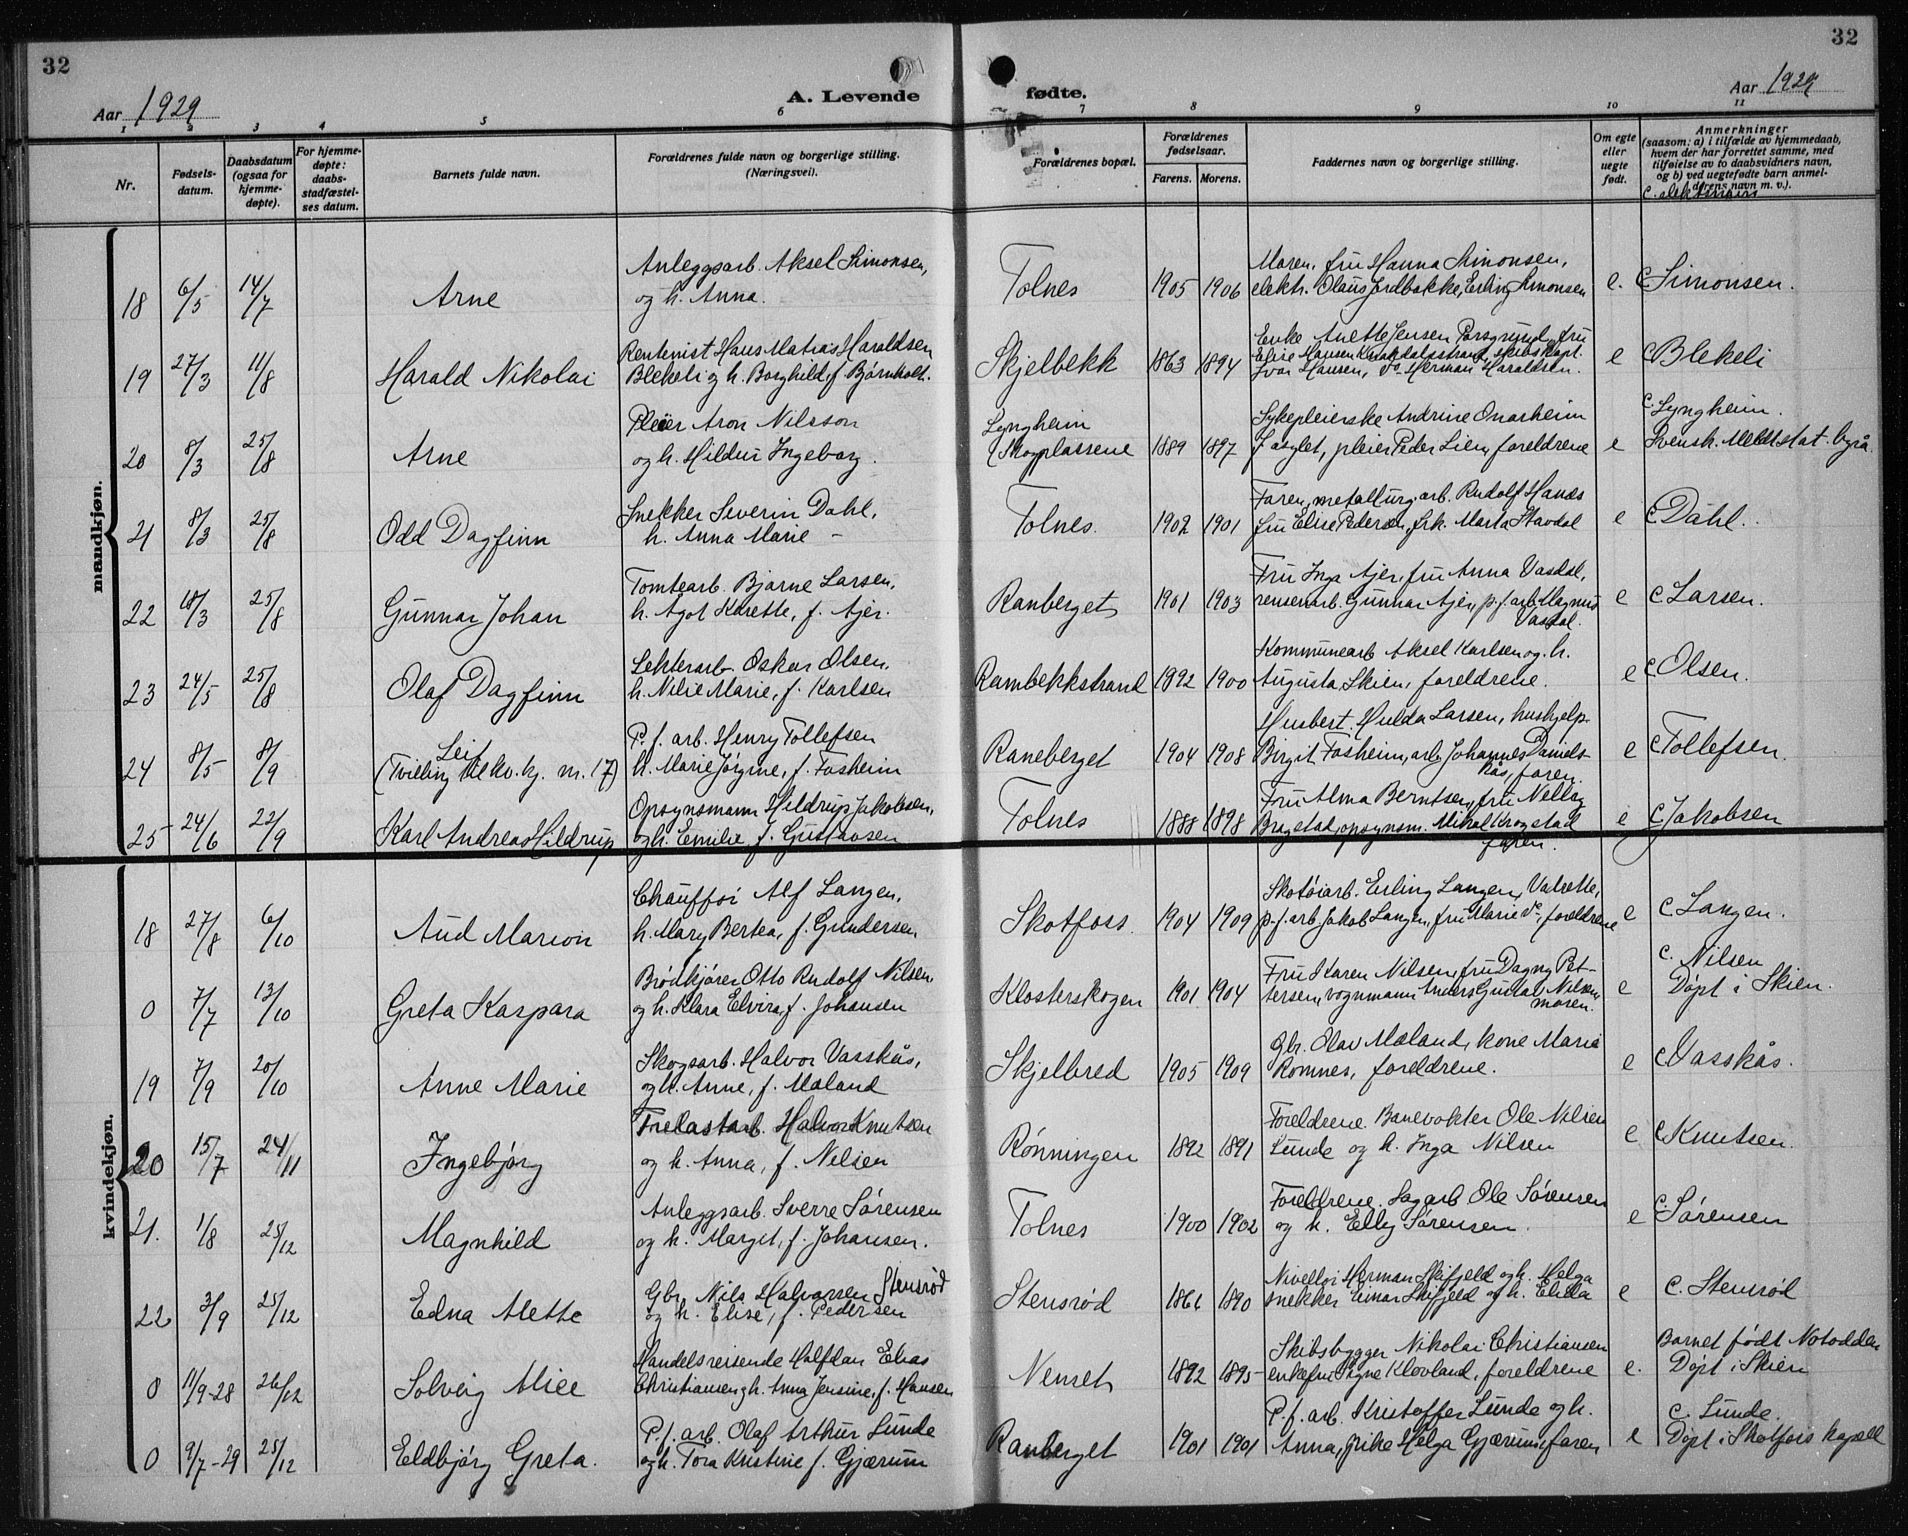 32
32
Aar 1929
A. Levende fødte.
Aar 1929
1 2 3 4 5 6 7 8 9 10 11
Nr.
Fødsels-
datum.
Daabsdatum
(ogsaa for
hjemme-
døpte).
For hjemme-
døpte:
daabs-
stadfæstel-
ses datum.
Barnets fulde navn.
Forældrenes fulde navn og borgerlige stilling.
(Næringsvei).
Forældrenes bopæl.
Forældrenes
fødselsaar.
Farens. Morens.
Faddernes navn og borgerlige stilling.
Om egte
eller
uegte
født.
Anmerkninger
(saasom: a) i tilfælde av hjemmedaab,
hvem der har forrettet samme, med
tilføielse av to daabsvidners navn,
og b) ved uegtefødte barn anmel-
derens navn m. v.).
mandkjøn.
Anleggsarb. Aksel Simonsen,
Moren, fru Hanna Simonsen,
18 6/5 14/7 Arne og h. Anna. Tolnes 1905 1906 elektr. Olaus Jordbakke, Erling Simonsen e. C Simonsen.
Rentenist Hans Matias Haraldsen
Enke Anette Jensen Porsgrund, fru
Elise Hansen Knardalsstrand, skibskapt.
19 27/3 11/8 Harald Nikolai Blekeli og h. Borghild, f. Bjørnholt. Skjelbekk 1863 1894 Ivar Hansen, do Herman Haraldsen. e C Blekeli
Pleier Aron Nilsson
Lyngheim
Sykepleierske Andrine Onarheim
C. Lyngheim.
20 8/3 25/8 Arne og h. Hildur Ingeborg. Skogplassene 1889 1897 f. asylet, pleier Peder Lien, foreldrene e Svensk. Meldt stat. byrå
Snekker Severin Dahl,
Faren, metallurg. arb. Rudolf Hanås
21 8/3 25/8 Odd Dagfinn h. Anna Marie – Tolnes. 1902 1901 fru Elise Pedersen, frk. Marta Stavdal e C Dahl.
Tomtearb. Bjarne Larsen,
Fru Inga Ajer, fru Anna Vasdal,
22 18/3 25/8 Gunnar Johan h. Agot Karette, f. Ajer. Ranberget 1901 1903 renseriarb. Gunnar Ajer, p.f. arb. Magnus e C Larsen.
Vasdal.
Lekterarb. Oskar Olsen.
Kommunearb. Aksel Karlsen og h.
23 24/5 25/8 Olaf Dagfinn h. Nilie Marie, f. Karlsen Rambekkstrand 1892 1900 Augusta, Skien, foreldrene. e C Olsen.
Leif
P.f. arb. Henry Tollefsen
Husbest. Hulda Larsen, hushjelp
24 8/5 8/9 (Tvilling til kv. kj. nr. 17) h. Marie Jørgine, f. Fosheim Raneberget 1904 1908 Birgit Fosheim, arb. Johannes Daniels- e C Tollefsen.
Ås, faren.
Opsynsmann Hildrup Jakobsen,
Fru Alma Berntsen, fru Nelly
25 24/6 22/9 Karl Andreas Hildrup og h. Emilie f. Gustavsen Tolnes 1888 1898 opsynsm. Mikal Krogstad e C Jakobsen
faren.
kvindekjøn.
Chauffør Alf Langen,
Skotøiarb. Erling Langen, Valrette,
18 27/8 6/10 Aud Marion h. Mary Bertea, f. Gundersen Skotfoss. 1904 1909 p.f. arb. Jakob Langen, fru Marie do, foreldrene e C Langen.
Brødkjører Otto Rudolf Nilsen,
Fru Karen Nilsen, fru Dagny Pet-
C. Nilsen
0 7/7 13/10 Greta Kaspara og h. Klara Elvira, f. Johansen Klosterskogen 1901 1904 tersen, vognmann Anders Gustav Nilsen, e Døpt i Skien.
moren.
Skogsarb. Halvor Vasskås,
Gbr. Olav Mæland, kone Marie
19 7/9 20/10 Anne Marie og h. Anne, f. Mæland Skjelbred 1905 1909 Romnes, foreldrene. e C Vasskås.
Trelastarb. Halvor Knutsen
Foreldrene Banevokter Ole Nilsen
20 15/7 24/11 Ingebjørg og h. Anna, f. Nilsen Rønningen 1892 1891 Lunde og h. Inga Nilsen e C Knutsen.
Anleggsarb. Sverre Sørensen
Foreldrene. Sagarb Ole Sørensen
21. 1/8 25/12 Magnhild og h. Margit, f. Johansen. Tolnes 1900 1902 og h. Elley Sørensen. e C. Sørensen
Gbr. Nils Halvorsen Stensrød
Nivellør Herman Skifjeld og h. Helga
22 3/9 25/12 Edna Alette og h. Elise, f. Pedersen Stensrød 1866 1890 snekker Einar Skifjeld og h. Elida e C. Stensrød
Handelsreisende Halfdan Elias
Skibsbygger Nikolai Christiansen
Barnet født Notodden
0 11/9-28 26/12 Solveig Alice Christiansen og h. Anna Jensine, f. Hansen Nenset 1892 1895 enkefru Signe Klovland, foreldrene e. Døpt i Skien
P.f. arb. Olaf Arthur Lunde
P.f. arb. Kristoffer Lunde og h.
C. Lunde.
0 9/7-29 25/12 Eldbjørg Greta. og h. Tora Kristine f. Gjærum Ranberget 1901 1901 Anna, pike Helga Gjærum, faren e Døpt i Skotfoss kapell